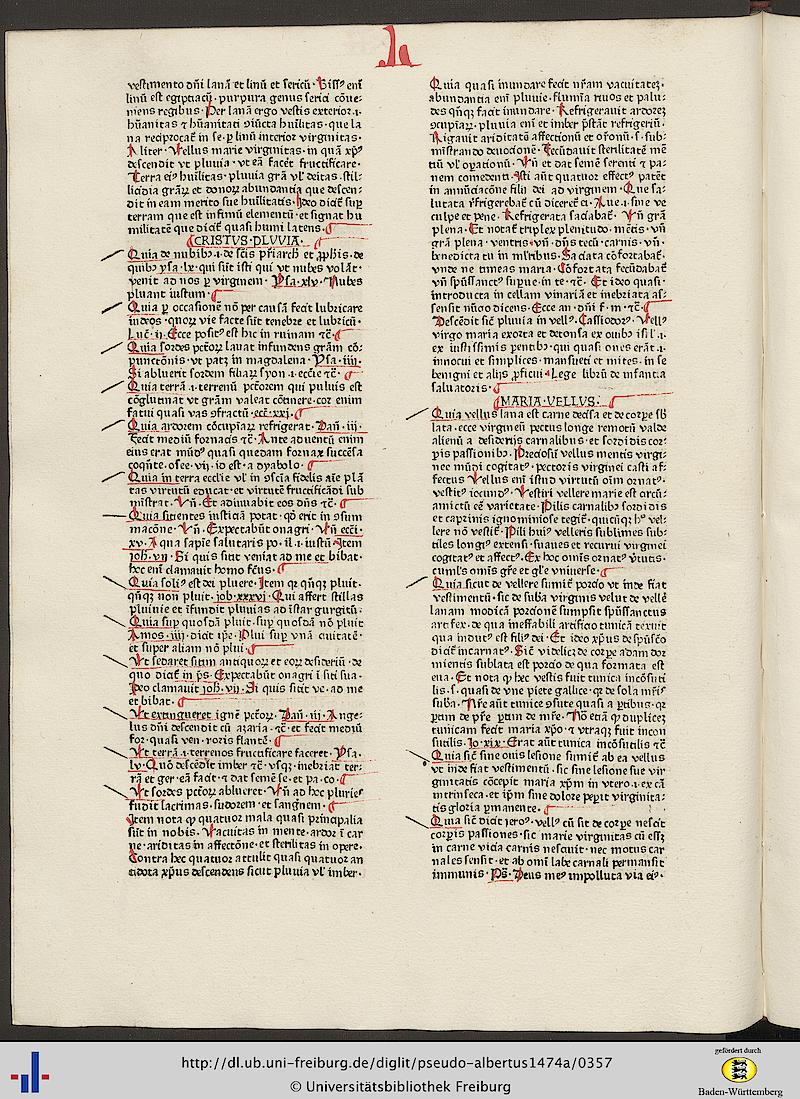 h
vestimento dñi lanã et linũ et sericũ· Biss⁹ em̃
linũ est egiptiacũ· purpura genus serici cõue-
niens regibus· Per lanã ergo vestis exterior·i·
hũanitas ⁊ hũanitati ɔiũcta hũilitas· que la
na reciprocat̃ in se· ꝑ linũ interior virginitas·
Aliter· Vellus marie virginitas· in quã xp̃⁹
descendit vt pluuia· vt eã facẽt fructificare·
Terra ei⁹ hũilitas· pluuia grã vl̃ deitas· stil-
licidia grãꝝ et donoꝝ abundantia que descen-
dit in eam merito sue hũilitatis· Ideo dicit̃ suꝑ
terram que est infimũ elementũ· et signat hu
militatẽ que dicit̃ quasi humi latens·
CRISTVS·PLVVIA·
Quia de nubib⁹·i·de scis pr̃iarch̃ et ꝓph̃is· de
quib⁹ ysa·lx· qui sũt isti qui vt nubes volãt·
venit ad nos ꝑ virginem· Ysa·xlv· Nubes
pluant iustum·
Quia ꝑ occasionẽ nõ per causã fecit lubricare
iudeos· quoꝝ vie facte sũt tenebre et lubricũ·
Luc̃·ij· Ecce posit⁹ est hic in ruinam ⁊c̃·
Quia sordes pctõꝝ lauat infundens grãm cõ-
punctõnis· vt patꝫ in magdalena· Ysa·iiij·
Si abluerit sordem filiaꝝ syon·i·ecc̃ie ⁊c̃·
Quia terrã·i·terrenũ pctõrem qui puluis est
cõglutinat vt grãm valeat cõtinere· cor enim
fatui quasi vas ɔfractũ· ecc̃·xxj·
Quia ardorem cõcupiãꝝ refrigerat· Dañ·iij·
Fecit mediũ fornacis ⁊c̃· Ante aduentũ enim
eius erat mũd⁹ quasi quedam fornax succẽsa
coqñte· osee·vij· id est·a dyabolo·
Quia in terra ecclie vl̃ in ɔscĩa fidelis aĩe plã
tas virtutũ educat· et virtutẽ fructificãdi sub
mĩstrat· Vñ· Et adiuuabit eos dñs ⁊c̃·
Quia sitientes iusticiã potat· qd̃ erit in ɔsum
macõne· Vñ· Expectabũt onagri· Vñ ecc̃i·
xv· Aqua sapĩe salutaris po·il·i·iustũ Item
joh̃·vij· Si quis sitit veniat ad me et bibat·
hec em̃ clamauit homo ſcus·
Quia soli⁹ est dei pluere· Item qꝛ qñqꝫ pluit·
qñqꝫ non pluit· job·xxxvi· Qui affert stillas
pluuie et ĩfundit pluuias ad ĩstar gurgitũ·
Quia suꝑ quosdã pluit· suꝑ quosdã nõ pluit
Amos·iiij· dicit ip̃e· Plui suꝑ vnã ciuitatẽ·
et super aliam nõ plui·
Vt sedaret sitim antiquoꝝ et eoꝝ desideriũ· de
quo dicit̃ in ps̃· Expectabũt onagri ĩ siti sua·
Ideo clamauit joh̃·vij· Si quis sitit ve·ad me
et bibat·
Vt extingueret ignẽ pctõꝝ· Dañ·iij· Ange-
lus dñi descendit cũ azaria·⁊c̃· et fecit mediũ
for·quasi ven·roris flantẽ·
Vt terrã·i·terrenos fructificare faceret· Ysa·
lv· Quõ descẽdit imber ⁊c̃·vsqꝫ·inebriat ter-
rã et ger·eã facit ⁊ dat semẽ se·et pa·co·
Vt sordes pctõꝝ ablueret· Vñ ad hec pluries
fudit lacrimas· sudorem· et sang̃nem·
Item nota ꝙ quatuor mala quasi principalia
sũt in nobis· Vacuitas in mente· ardor ĩ car
ne·ariditas in affectõne· et sterilitas in opere·
Contra hec quatuor attulit quasi quatuor an
tidota xp̃us descendens sicut pluuia vl̃ imber·
Quia quasi inundare fecit nr̃am vacuitatẽ·
abundantia em̃ pluuie· flumĩa riuos et palu-
des qñqꝫ facit inundare· Refrigerauit ardorẽ
ɔcupiãꝝ· pluuia em̃ et imber p̃stãt refrigeriũ·
Rigauit ariditatẽ affectionũ et or̃onũ·s·sub-
mĩstrando deuocionẽ· Fecũdauit sterilitatẽ mẽ
tiũ vl̃ oꝑationũ· Vñ et dat semẽ serenti ⁊ pa-
nem comedenti· Isti aũt quatuor effect⁹ patẽt
in annũciacõne filij dei ad virginem· Que sa-
lutata rifrigerebat̃ cũ diceret̃ ei· Aue·i·sine ve
culpe et pene· Refrigerata saciabat̃· Vñ grã
plena· Et notat̃ triplex plenitudo· mẽtis· vñ
grã plena· ventris·vñ·dñs tecũ·carnis· vñ·
benedicta tu in mĩribus· Saciata cõfortabat̃·
vnde ne timeas maria· Cõfortata fecũdabat̃
vñ sp̃ussanct⁹ suꝑue·in te·⁊c̃· Et ideo quasi·
introducta in cellam vinariã et inebriata as-
sensit nũcio dicens· Ecce an·dñi f·m·⁊c̃·
Descẽdit sic̃ pluuia in vell⁹· Cassiodor⁹· Vell⁹
virgo maria exorta et detonsa ex ouib⁹ isl̃·i·
ex iustissimis pentib⁹· qui quasi oues erãt·i·
innocui et simplices· mansueti et mites· in se
benigni et alijs ꝓficui· Lege librũ de infantia
saluatoris·
MARIA·VELLVS·
Quia vellus lana est carne decisa et de corꝑe sb̃
lata· ecce virgineũ pectus longe remotũ valde
alienũ a desiderijs carnalibus· et sordidis cor-
ꝑis passionib⁹· Preciosũ vellus mentis virgi-
nee mũdi cogitat⁹· pectoris virginei casti af-
fectus· Vellus em̃ istud virtutũ oĩm ornat⁹·
vestit⁹ iocund⁹· Vestiri vellere marie est orcũ·
amictũ cẽ varietate· Pilis carnalib⁹ sordidis
et caprinis ignominiose tegit̃· quicũqꝫ h⁹ vel-
lere nõ vestit̃· Pili hui⁹ velleris sublimes sub-
tiles longi⁹ extensi· suaues et recurui virginei
cogitat⁹ et affect⁹· Ex hoc oĩs ornat⁹ ṽtutis·
cumul⁹ oĩs grẽ et glẽ vniuerse·
Quia sicut de vellere sumit̃ porcio vt inde fiat
vestimentũ· sic de suba virginis velut de vellẽ
lanam modicã porcionẽ sumpsit sp̃ussanctus
artifex· de qua ineffabili artificio tunicã texuit
qua indut⁹ est fili⁹ dei· Et ideo xp̃us de sp̃us̃c̃o
dicit̃ incarnat⁹· Sic̃ videlicꝫ de corꝑe adam dor
mientis sublata est porcio de qua formata est
eua· Et nota ꝙ hec vestis fuit tunica incõsuti
lis·s·quasi de vne piete gallice·qꝛ de sola mr̃is
suba· Nr̃e aũt tunice ɔsute quasi a ꝑtibus·qꝛ
ꝑtim de pr̃e ꝑtim de mr̃e· Nõ etiã ꝙ duplicẽ
tunicam fecit maria xp̃o· ⁊ vtraqꝫ fuit incon
sutilis· Io·xix· Erat aũt tunica incõsutilis ⁊c̃
Quia sic̃ sine ouis lesione sumit̃ ab ea vellus
vt inde fiat vestimentũ· sic sine lesione sue vir
ginitatis cõcepit maria xp̃m in vtero·i·ex cã
intrinseca· et ip̃m sine dolore peꝑit virginita-
tis gloria ꝑmanente·
Quia sic̃ dicit jero⁹· vell⁹ cũ sit de corꝑe nescit
corꝑis passiones· sic marie virginitas cũ eẽt
in carne vicia carnis nesciuit· nec motus car
nales sensit· et ab omi labe carnali permansit
immunis· Ps̃· Deus me⁹ impolluta via ei⁹·
http://dl.ub.uni-freiburg.de/diglit/pseudo-albertus1474a/0357
© Universitätsbibliothek Freiburg
gefördert durch
Baden-Württemberg